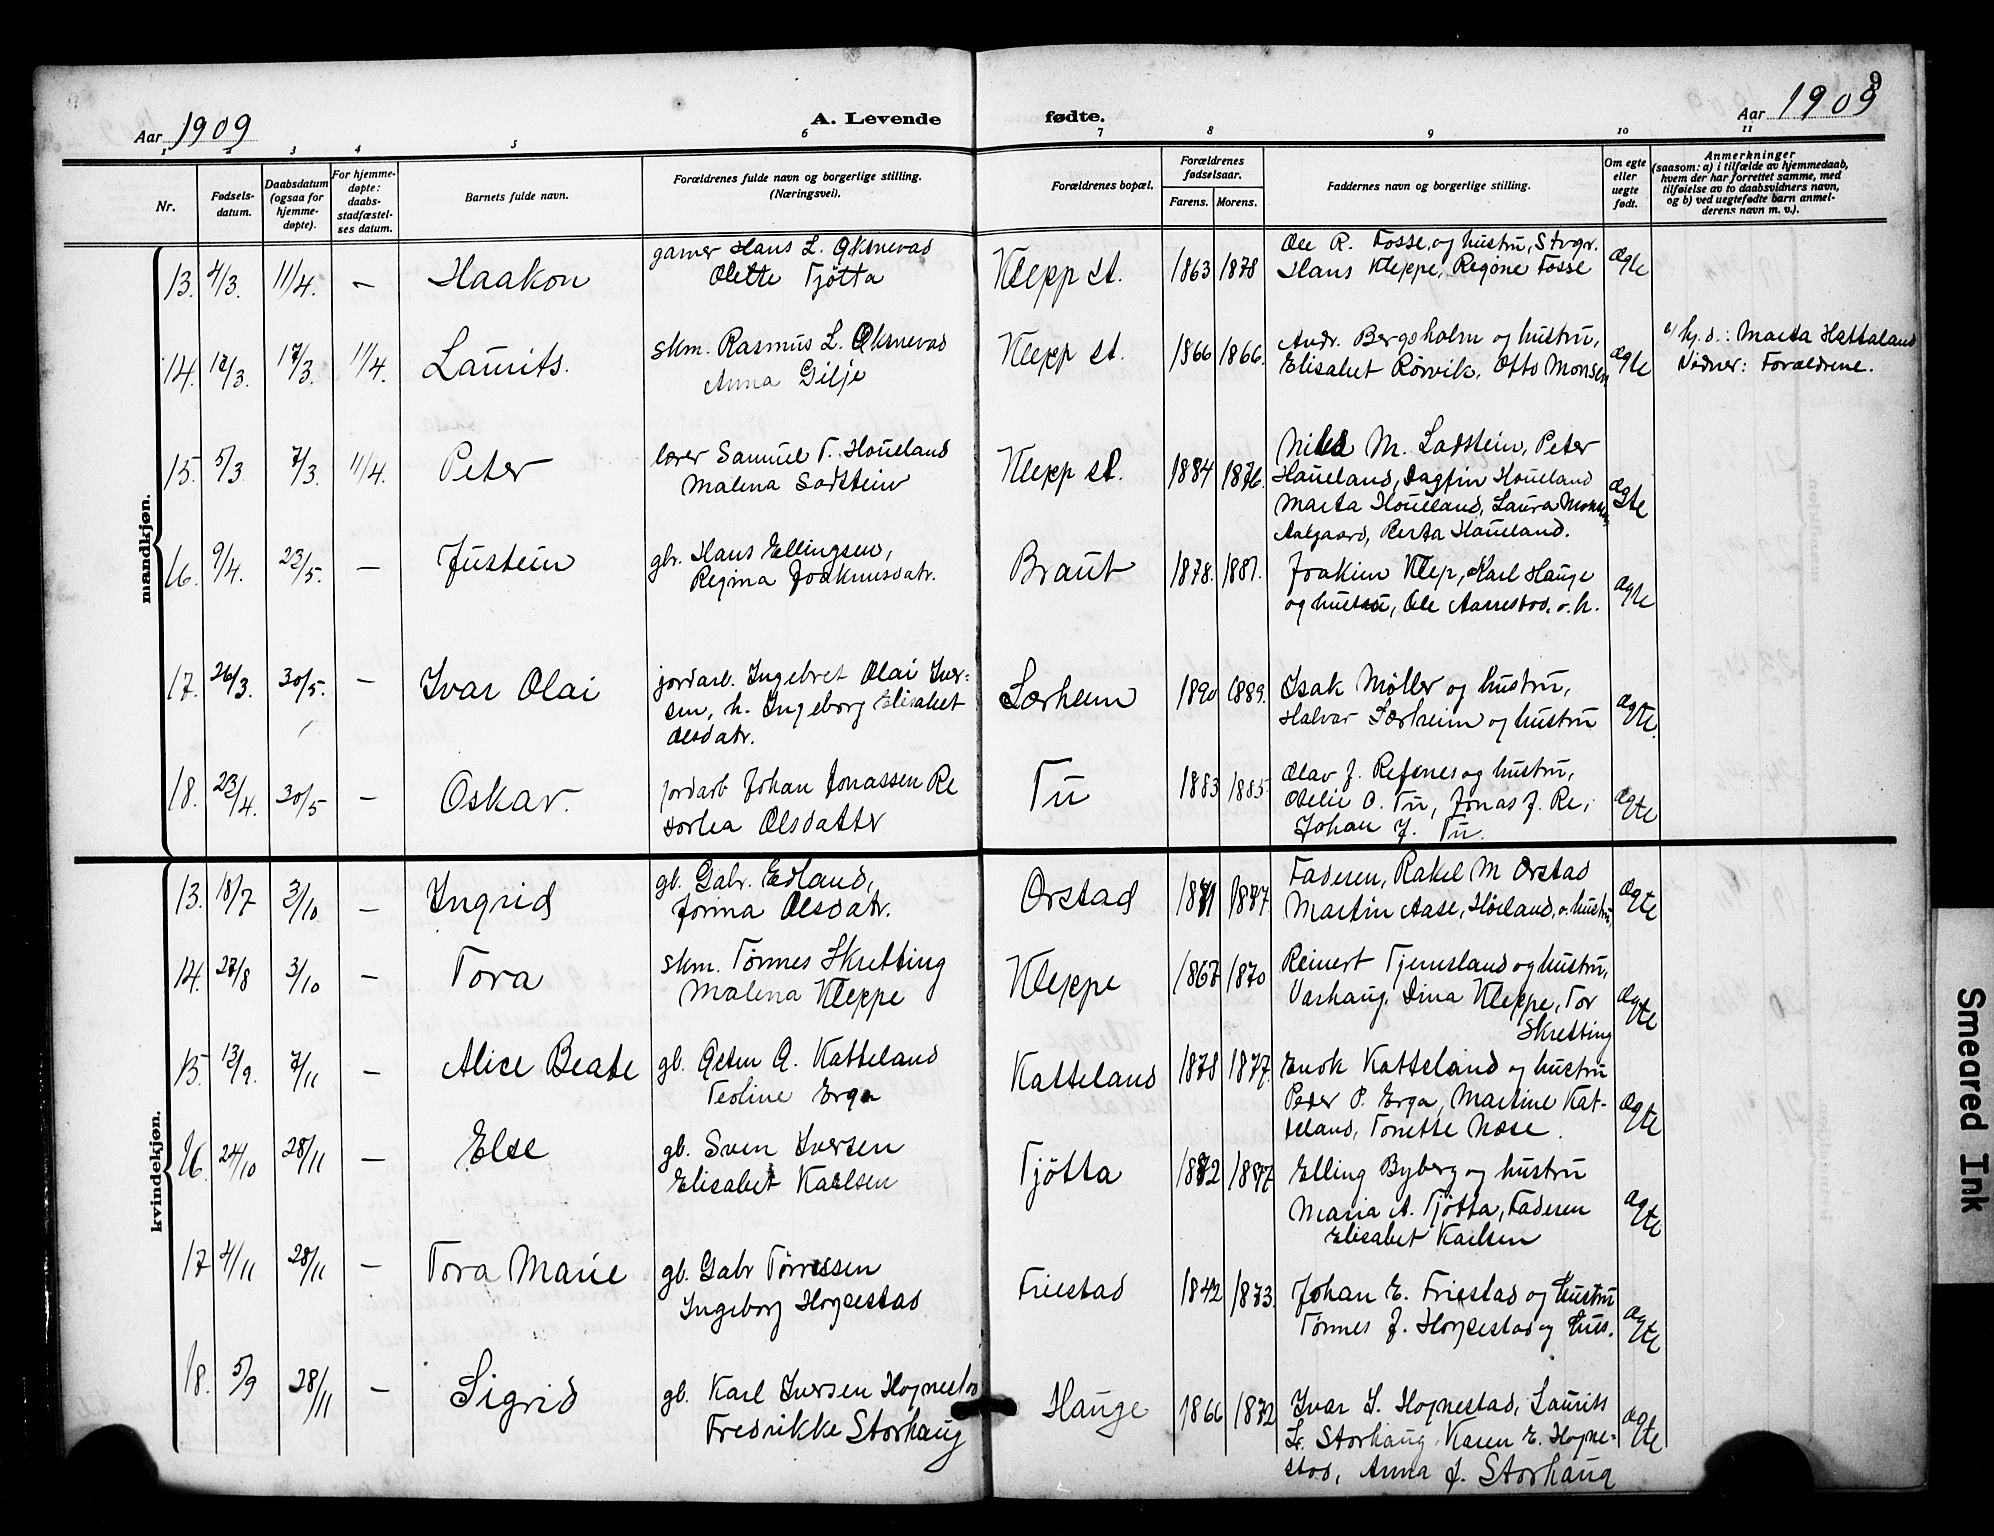 9
Aar 1909
A. Levende fødte.
Aar 1909
1 2 3 4 5 6 7 8 9 10 11
Nr.
Fødsels-
datum.
Daabsdatum
(ogsaa for
hjemme-
døpte).
For hjemme-
døpte:
daabs-
stadfæstel-
ses datum.
Barnets fulde navn.
Forældrenes fulde navn og borgerlige stilling.
(Næringsvei).
Forældrenes bopæl.
Forældrenes
fødselsaar.
Farens. Morens.
Faddernes navn og borgerlige stilling.
Om egte
eller
uegte
født.
Anmerkninger
(saasom: a) i tilfælde av hjemmedaab,
hvem der har forrettet samme, med
tilføielse av to daabsvidners navn,
og b) ved uegtefødte barn anmel-
derens navn m. v.).
mandkjøn.
13. 4/3. 11/4. — Haakon
garver Hans L. Øksnevad
Olette Tjøtta
Klepp st. 1863 1878
Ole R. Fosse, og hustru, Stvgr.
Hans Kleppe, Regine Fosse
ægte
14. 12/3. 17/3. 11/4. Laurits.
skm. Rasmus L. Øksnevad
Anna Gilje
Klepp st. 1866 1866.
Andr. Bergsholm og hustru,
Elisabet Rørvik, Otto Monsen
ægte
a) hj.d.: Marta Hattaland
Vidner: Forældrene.
15. 5/3. 7/3. 11/4. Peter
lærer Samuel T. Houeland
Malena Sodstein
Klepp st. 1884 1876.
Nils M. Lodstein, Peter
Houeland, Dagfin Houeland
Marta Houeland, Laura
Aalgaard, Berta Houeland.
ægte
16. 9/4. 23/5. — Justein
gbr. Hans Ellingsen,
Regina Joakimsdatr.
Braut 1878. 1881.
Joakim Klep, Karl Hauge
og hustru, Ole Aarrestad o. h.
ægte
17. 26/3. 30/5. — Ivar Olai
jordarb. Ingebret Olai Iver-
sen, h. Ingeborg Elisabet
Olsdatr.
Lærheim 1890 1889.
Isak Møller og hustru,
Halvar Lærheim og hustru
ægte.
18. 23/4. 30/5 — Oskar.
jordarb Johan Jonassen Re
Dorlea Olsdatter
Tu 1883 1885.
Olav J. Refsnes og hustru,
Otelie O. Tu, Jonas J. Re,
Johan J. Tu.
ægte
kvindekjøn.
13. 18/7 3/10 — Ingrid
gb. Gabr. Edland,
Jorina Olsdatr.
Orstad 1871 1877.
Faderen, Rakel M Orstad
Martin Aase, Høiland, o. hustru,
ægte
14. 27/8 3/10 — Tora
skm. Tønnes Skretting
Malena Kleppe
Kleppe 1867 1870
Reinert Tjemsland og hustru,
Varhaug. Dina Kleppe, Tor
Skretting
ægte
15. 13/9. 7/11 — Alice Beate
gb. Gesten G. Katteland
Teoline Erga
Katteland 1878 1877.
Enok Katteland og hustru
Peder P. Erga, Martine Kat-
teland, Tonette Næse.
ægte
16. 24/10 28/11 — Else
gb. Sven Iversen
Elisabet Karlsen
Tjøtta 1882 1887.
Elling Byberg og hustru
Maria A. Tjøtta, Faderen
Elisabet Karlsen
ægte
17 4/11 28/11 — Tora Marie
gb. Gabr Tørressen
Ingeborg Hognestad
Friestad 1842 1873.
Johan E. Friestad og hustru
Tønnes J. Hognestad og hus.
ægte
18. 5/9 28/11 — Sigrid
gb. Karl Iversen Hognestad
Fredrikke Storhaug
Hauge 1866 1872
Ivar S. Hognestad, Laurits
L. Storhaug, Karen E. Hogne-
stad, Anna J. Storhaug
ægte
Smeared Ink